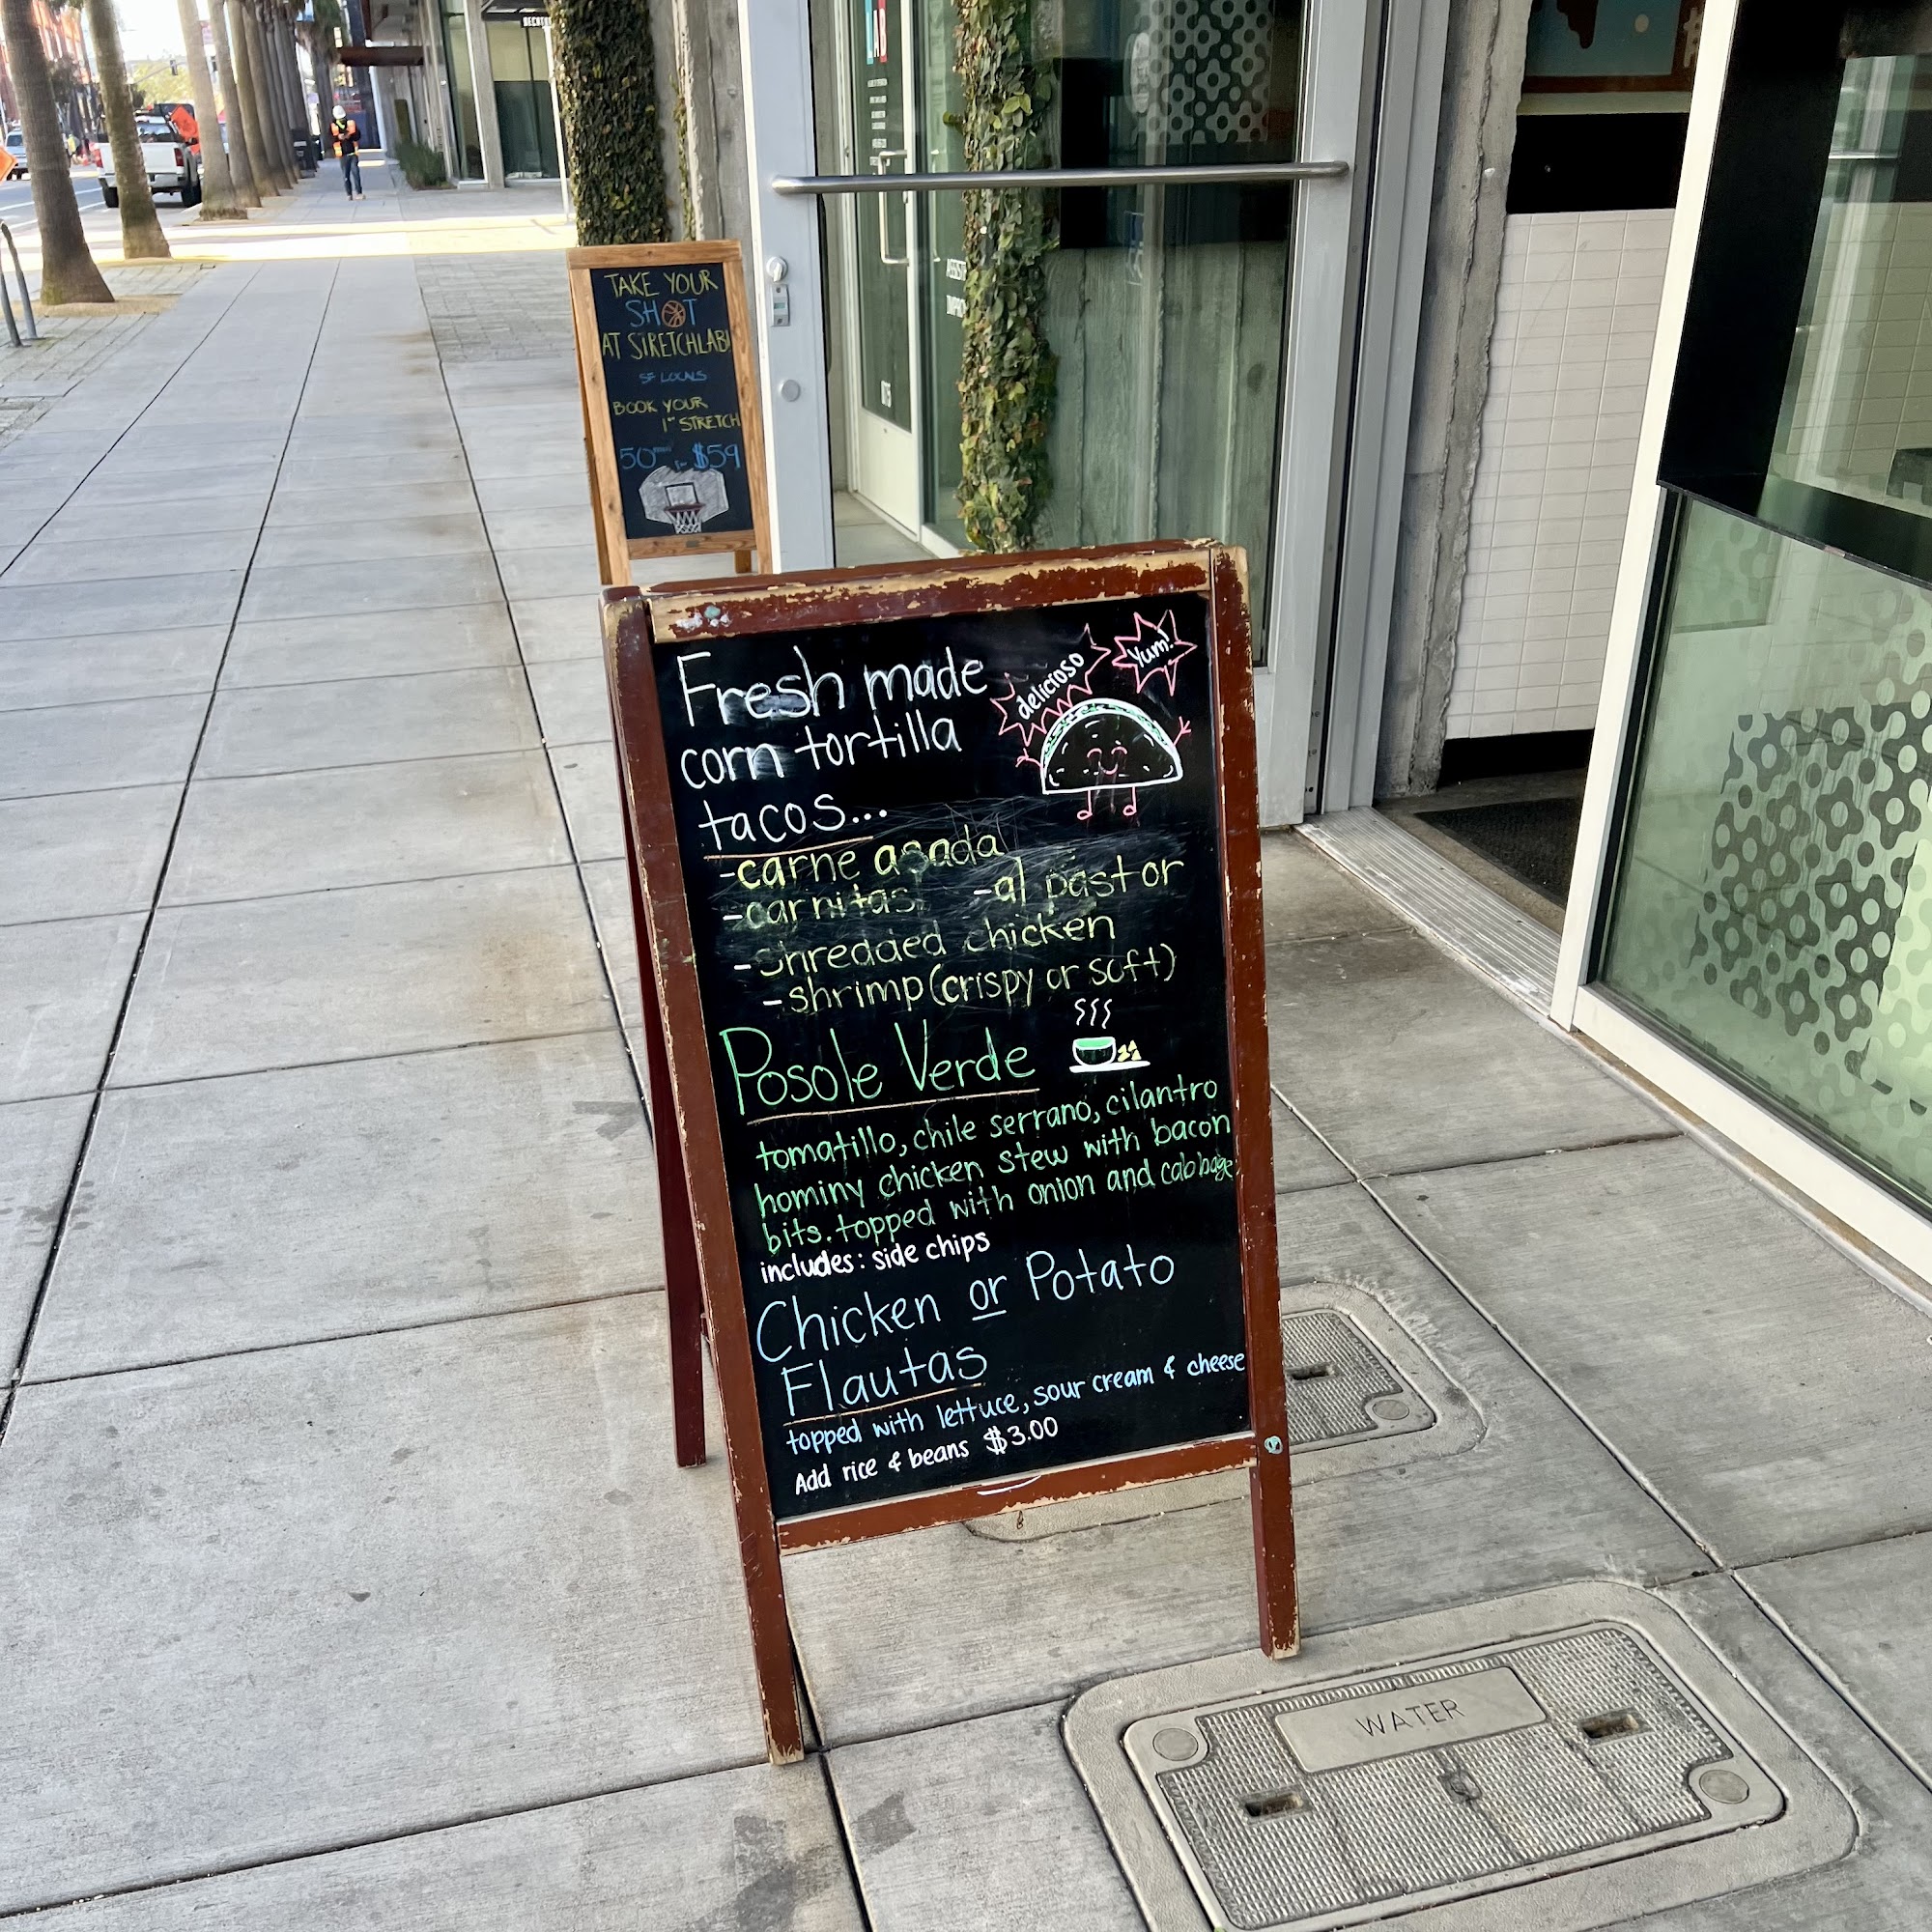 TAKE YOUR
SHOT
AT STRETCHLAB!
SF LOCALS
BOOK YOUR
1ST STRETCH
50min for $59
Fresh made
corn tortilla
tacos...
delicioso
Yum!
-carne asada
-carnitas -al pastor
-shredded chicken
-shrimp (crispy or soft)
Posole Verde
tomatillo, chile serrano, cilantro
hominy chicken stew with bacon
bits. topped with onion and cabbage
includes: side chips
Chicken or Potato
Flautas
topped with lettuce, sour cream & cheese
Add rice & beans $3.00
WATER
LAB